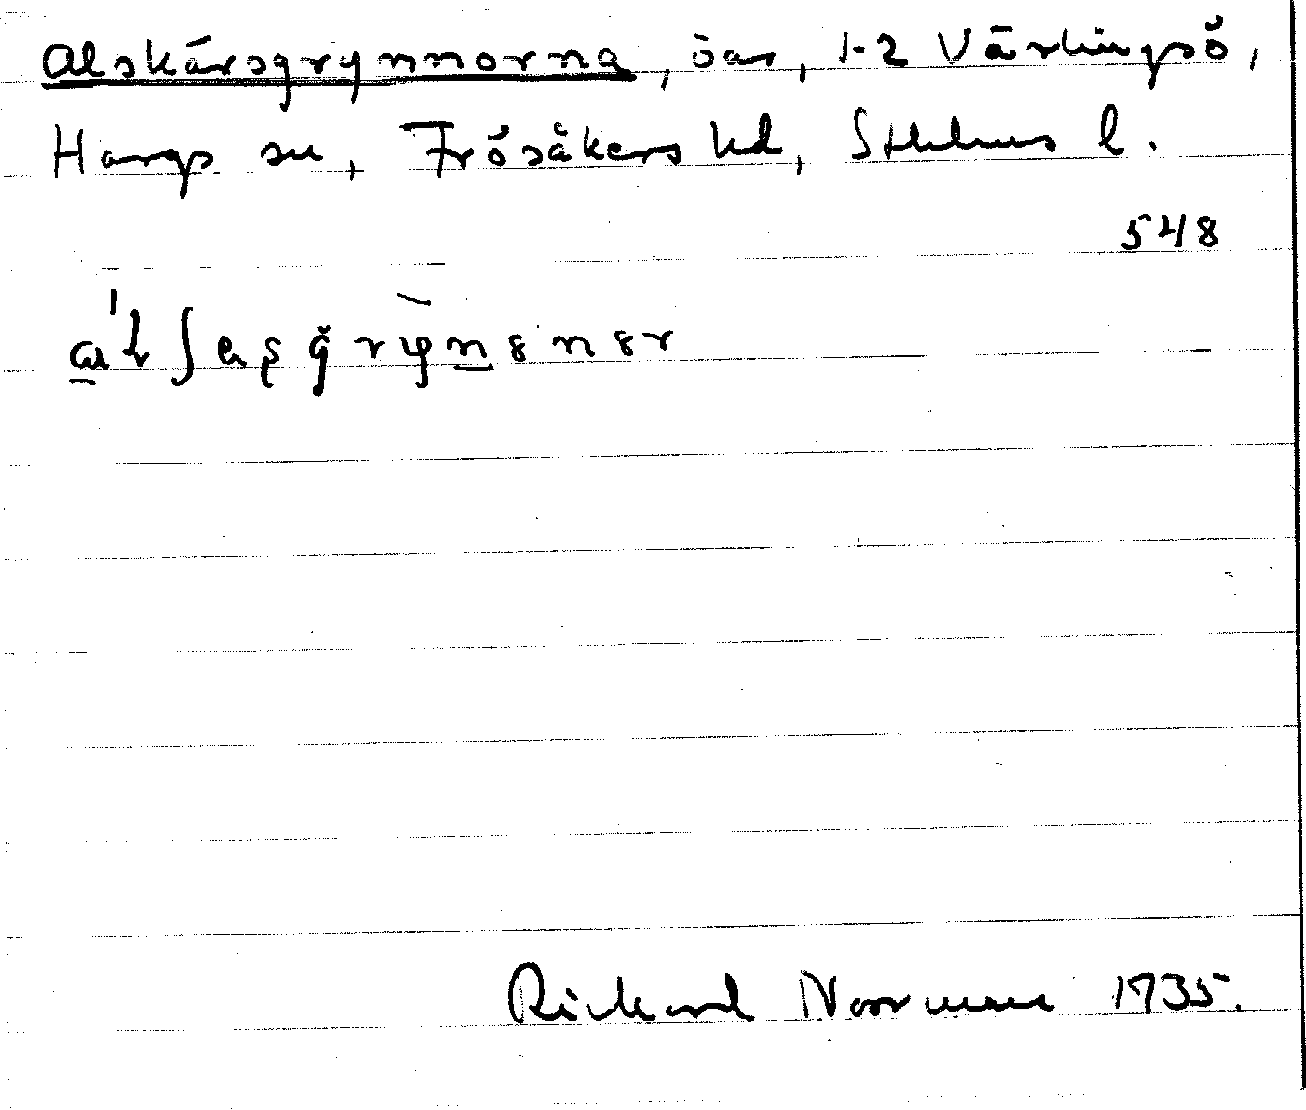 Alskärsgrynnorna, öar, 1-2 Värlingsö,
Hargs sn, Frösåkers hd, Sthlms l.
548
Rickard Norrman 1935.